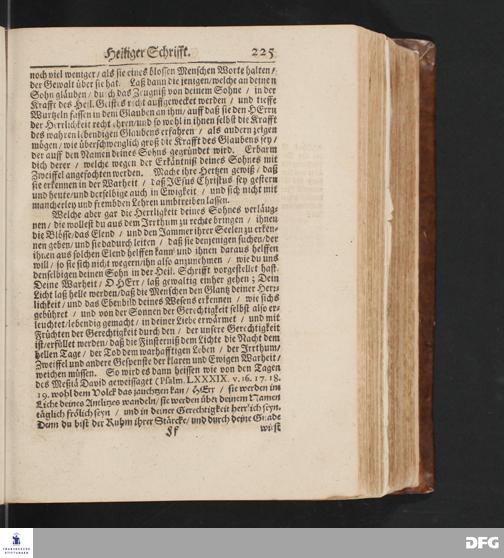 Heiliger Schrifft. 225
noch viel weniger / als sie eines blossen Menschen Worte halten /
der Gewalt über sie hat. Laß dann die jenigen / welche an deinen
Sohn gläuben / durch das Zeugniß von deinem Sohne / in der
Krafft des Heil. Geistes recht auffgewecket werden / und tieffe
Wurtzeln fassen in dem Glauben an ihm / auff daß sie den HErrn
der Herrligkeit recht ehren / und so wohl in ihnen selbst die Krafft
des wahren lebendigen Glaubens erfahren / als andern zeigen
mögen / wie überschwenglich groß die Krafft des Glaubens sey /
der auff den Namen deines Sohns gegründet wird. Erbarm
dich derer / welche wegen der Erkäntniß deines Sohnes mit
Zweiffel angefochten werden. Mache ihre Hertzen gewiß / daß
sie erkennen in der Warheit / daß JEsus Christus sey gestern
und heute / und derselbige auch in Ewigkeit / und sich nicht mit
mancherley und frembden Lehren umbtreiben lassen.
Welche aber gar die Herrligkeit deines Sohnes verläug-
nen / die wollest du aus dem Irrthum zu rechte bringen / ihnen
die Blösse / das Elend / und den Jammer ihrer Seelen zu erken-
nen geben / und sie dadurch leiten / daß sie denjenigen suchen / der
ihnen aus solchen Elend helffen kann und ihnen daraus helffen
will / so sie sich nicht wegern / ihn also anzunehmen / wie du uns
denselbigen deinen Sohn in der Heil. Schrifft vorgestellet hast.
Deine Warheit / O HErr / laß gewaltig einher gehen; Dein
Licht laß helle werden / daß die Menschen den Glantz deiner Herr-
lichkeit / und das Ebenbild deines Wesens erkennen / wie sichs
gebühret / und von der Sonnen der Gerechtigkeit selbst also er-
leuchtet / lebendig gemacht / in deiner Liebe erwärmet / und mit
Früchten der Gerechtigkeit durch den / der unsere Gerechtigkeit
ist / erfüllet werden / daß die Finsterniß dem Lichte die Nacht dem
hellen Tage / der Tod dem warhafftigen Leben / der Irrthum /
Zweiffel und andere Gespenste der klaren und Ewigen Warheit /
weichen müssen. So wird es dann heissen wie von den Tagen
des Meßiä David geweissaget (Psalm. LXXXIX. v. 16. 17. 18.
19. wohl dem Volck das jauchtzen kan / HErr / sie werden im
Liche deines Antlitzes wandeln / sie werden über deinem Namen
täglich frölich seyn / und in deiner Gerechtigkeit herrlich seyn.
Denn du bist der Ruhm ihrer Stärcke / und durch deine Gnade
Ff wirst
FRANCKESCHE
STIFTUNGEN
DFG